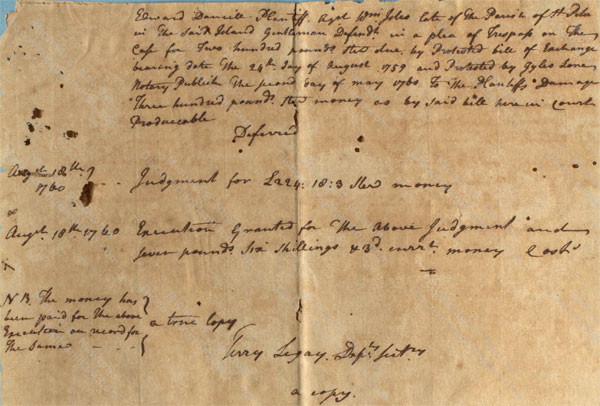 Edward Daniell Plantiff Agst Wm Joles late of The Parish of St Peter
in The Said Island Gentleman Defendt. in a plea of Trespass on The
Case for Two hundred pounds Sterl due by Protested bill of Exchange
bearing date The 24th Day of August 1759 and Protested by Gyles Lone
Notary Publick The second Day of may 1760 To The Plantiffs Damage
Three hundred pounds Sterl money as by said bill here in court
Produceable
Deferred
Augt 18th
1760 Judgment for £224: 18: 3 Sterl money
Augt. 18th 1760 Execution Granted for The above Judgment and
seven pounds Six Shillings & 3d. currt. money Costs
N B. The money has
been paid for the above
Execution on record for
The Same
a true copy
Terry Legay. Depty Secry
a copy.